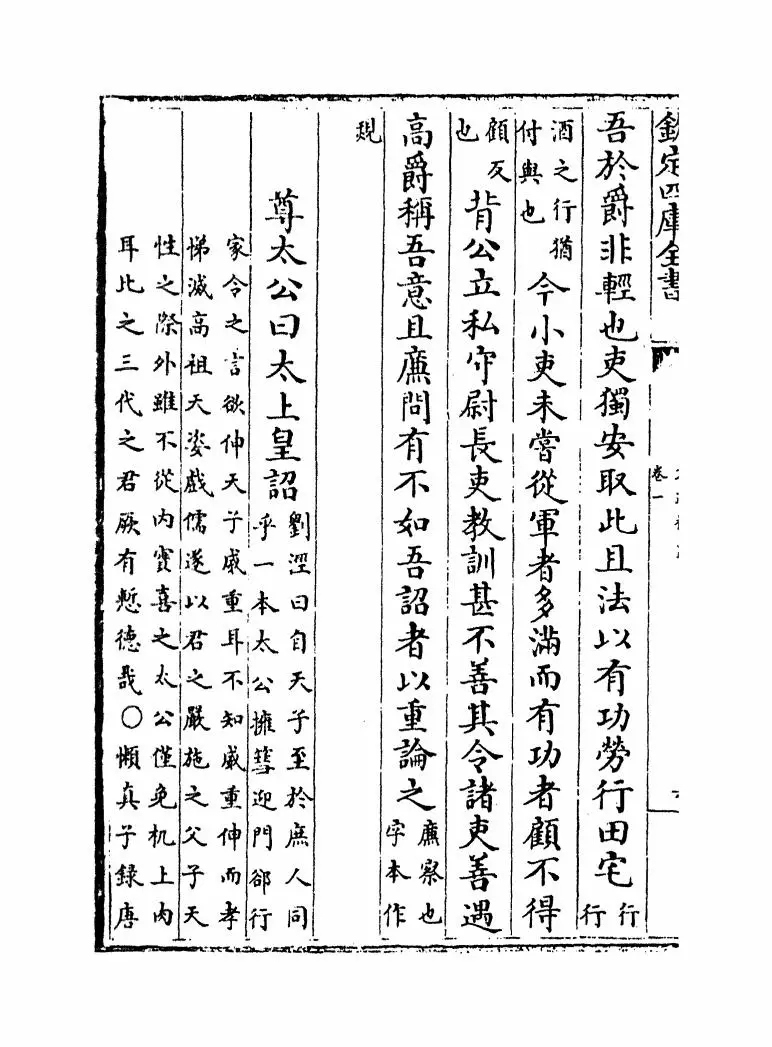 欽定四庫全書 卷一
吾於爵非輕也吏獨安取此且法以有功勞行田宅行行
酒之行猶付與也今小吏未嘗從軍者多滿而有功者顧不得
顧反也背公立私守尉長吏教訓甚不善其令諸吏善遇
高爵稱吾意且廉問有不如吾詔者以重論之廉察也字本作
覝
尊太公曰太上皇詔劉涇曰自天子至於庶人同
乎一本太公擁篲迎門郤行
家令之言欲伸天子威重耳不知威重伸而孝
悌滅高祖天姿戲儒遂以君之嚴施之父子天
性之際外雖不從内實喜之太公僅免机上肉
耳比之三代之君厥有慙德哉○懶真子録唐